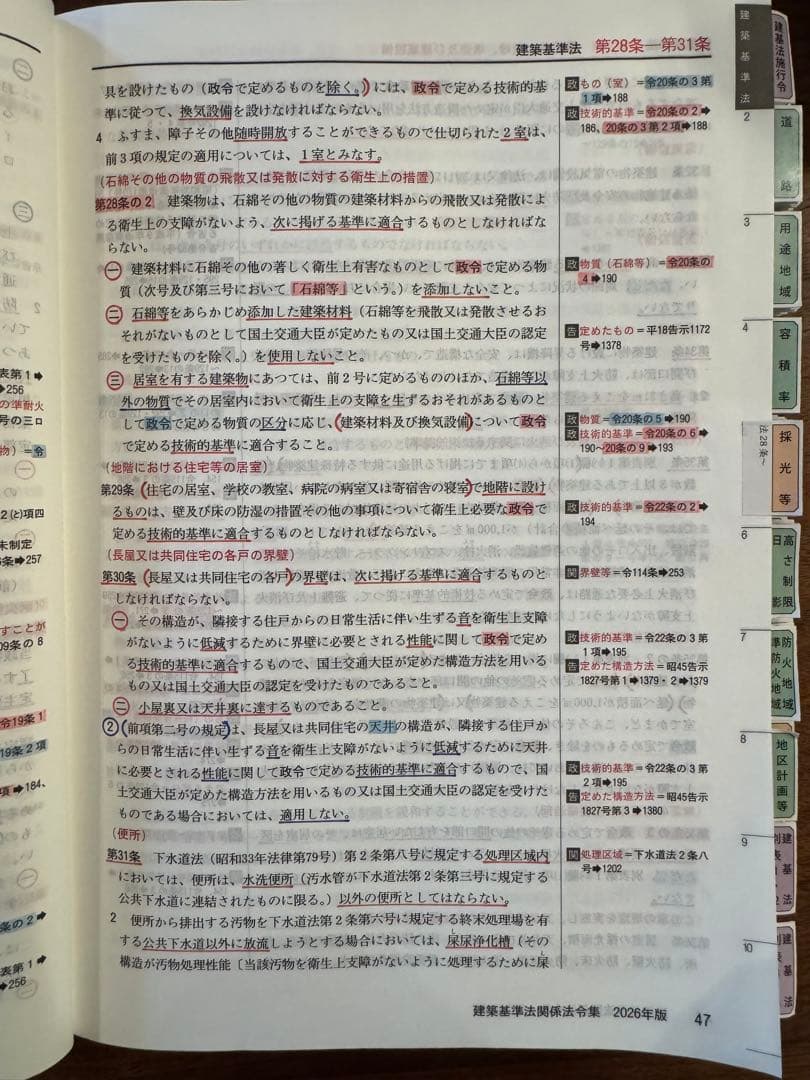 建築基準法 第28条―第31条
具を設けたもの（政令で定めるものを除く。）には、政令で定める技術的基
準に従つて、換気設備を設けなければならない。
4 ふすま、障子その他随時開放することができるもので仕切られた2室は、
前3項の規定の適用については、1室とみなす。
（石綿その他の物質の飛散又は発散に対する衛生上の措置）
第28条の2 建築物は、石綿その他の物質の建築材料からの飛散又は発散によ
る衛生上の支障がないよう、次に掲げる基準に適合するものとしなければな
らない。
一 建築材料に石綿その他の著しく衛生上有害なものとして政令で定める物
質（次号及び第三号において「石綿等」という。）を添加しないこと。
二 石綿等をあらかじめ添加した建築材料（石綿等を飛散又は発散させるお
それがないものとして国土交通大臣が定めたもの又は国土交通大臣の認定
を受けたものを除く。）を使用しないこと。
三 居室を有する建築物にあつては、前2号に定めるもののほか、石綿等以
外の物質でその居室内において衛生上の支障を生ずるおそれがあるものと
して政令で定める物質の区分に応じ、建築材料及び換気設備について政令
で定める技術的基準に適合すること。
（地階における住宅等の居室）
第29条 住宅の居室、学校の教室、病院の病室又は寄宿舎の寝室で地階に設け
るものは、壁及び床の防湿の措置その他の事項について衛生上必要な政令で
定める技術的基準に適合するものとしなければならない。
（長屋又は共同住宅の各戸の界壁）
第30条 長屋又は共同住宅の各戸の界壁は、次に掲げる基準に適合するものと
しなければならない。
一 その構造が、隣接する住戸からの日常生活に伴い生ずる音を衛生上支障
がないように低減するために界壁に必要とされる性能に関して政令で定め
る技術的基準に適合するもので、国土交通大臣が定めた構造方法を用いる
もの又は国土交通大臣の認定を受けたものであること。
二 小屋裏又は天井裏に達するものであること。
2 前項第二号の規定は、長屋又は共同住宅の天井の構造が、隣接する住戸か
らの日常生活に伴い生ずる音を衛生上支障がないように低減するために天井
に必要とされる性能に関して政令で定める技術的基準に適合するもので、国
土交通大臣が定めた構造方法を用いるもの又は国土交通大臣の認定を受けた
ものである場合においては、適用しない。
（便所）
第31条 下水道法（昭和33年法律第79号）第2条第八号に規定する処理区域内
においては、便所は、水洗便所（汚水管が下水道法第2条第三号に規定する
公共下水道に連結されたものに限る。）以外の便所としてはならない。
2 便所から排出する汚物を下水道法第2条第六号に規定する終末処理場を有
する公共下水道以外に放流しようとする場合においては、屎尿浄化槽（その
構造が汚物処理性能〔当該汚物を衛生上支障がないように処理するために屎
政 もの（室）＝令20条の3第
1項➡188
政 技術的基準＝令20条の2➡
186、20条の3第2項➡188
政 物質（石綿等）＝令20条の
4➡190
告 定めたもの＝平18告示1172
号➡1378
政 物質＝令20条の5➡190
政 技術的基準＝令20条の6➡
190～20条の9➡193
政 技術的基準＝令22条の2➡
194
関 界壁等＝令114条➡253
政 技術的基準＝令22条の3第
1項➡195
告 定めた構造方法＝昭45告示
1827号第1➡1379・2➡1379
政 技術的基準＝令22条の3第
2項➡195
告 定めた構造方法＝昭45告示
1827号第3➡1380
関 処理区域＝下水道法2条八
号➡1202
建築基準法関係法令集 2026年版
47
建築基準法
建基法施行令
2
道路
3
用途地域
4
容積率
採光等
法28条～
6
高さ制限
日影
7
防火地域
準防火地域
8
地区計画等
9
10
表第1➡
➡256
の準耐火
号の三ロ
物）＝令
2(と)項四
未制定
条➡257
すことが
09条の8
令19条1
19条2項
項➡184、
条の2➡
表第1➡
➡256